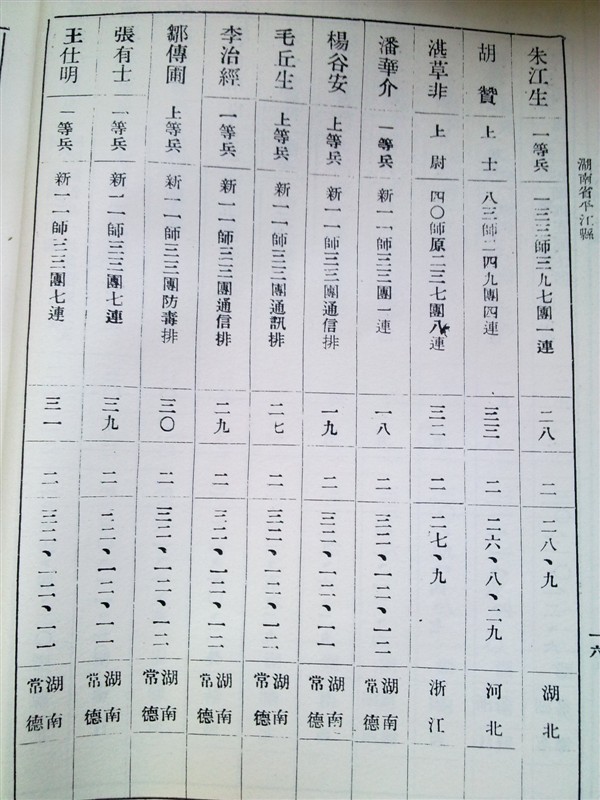 湖南省平江縣
一六
朱江生 一等兵 一三三師三九七團一連 二八 二 二八、九 湖北
胡贊 上士 八三師二四九團四連 三三 二 二六、八、二九 河北
湛草非 上尉 四〇師原二三七團八連 三二 二 二七、九 浙江
潘華介 一等兵 新一一師三三團一連 一八 二 三二、一二、一二 湖南常德
楊谷安 上等兵 新一一師三三團通信排 一九 二 三二、一二、一一 湖南常德
毛丘生 上等兵 新一一師三三團通訊排 二七 二 三二、一二、一二 湖南常德
李治經 一等兵 新一一師三三團通信排 二九 二 三二、一二、一二 湖南常德
鄒傳圃 上等兵 新一一師三三團防毒排 三〇 二 三二、一二、一二 湖南常德
張有士 一等兵 新一一師三三團七連 三九 二 三二、一二、一一 湖南常德
王仕明 一等兵 新一一師三三團七連 三一 二 三二、一二、一一 湖南常德